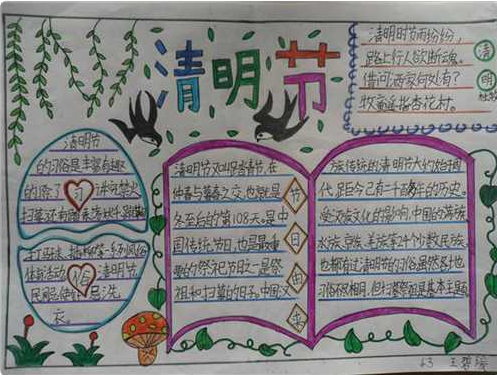 清明节
清明时节雨纷纷,
路上行人欲断魂。
借问酒家何处有?
牧童遥指杏花村。
清
明
杜牧
清明节
的习俗是丰富有趣
的,除了讲究禁火
扫墓,还有踏青、荡秋千、蹴鞠
习
打马球、插柳等一系列风俗
体育活动。清明节
俗
民间忌使针,忌洗
衣。
清明节又叫踏青节,在
仲春与暮春之交,也就是
冬至后的第108天。是中
国传统节日,也是最重
要的祭祀节日之一,是祭
祖和扫墓的日子。中国汉
节
日
由
来
族传统的清明节大约始于周
代,距今已有二千五百多年的历史。
受汉族文化的影响,中国的满族、
水族、京族、羌族等24个少数民族,
也都有过清明节的习俗。虽然各地
习俗不尽相同,但扫墓祭祖是基本主题
63